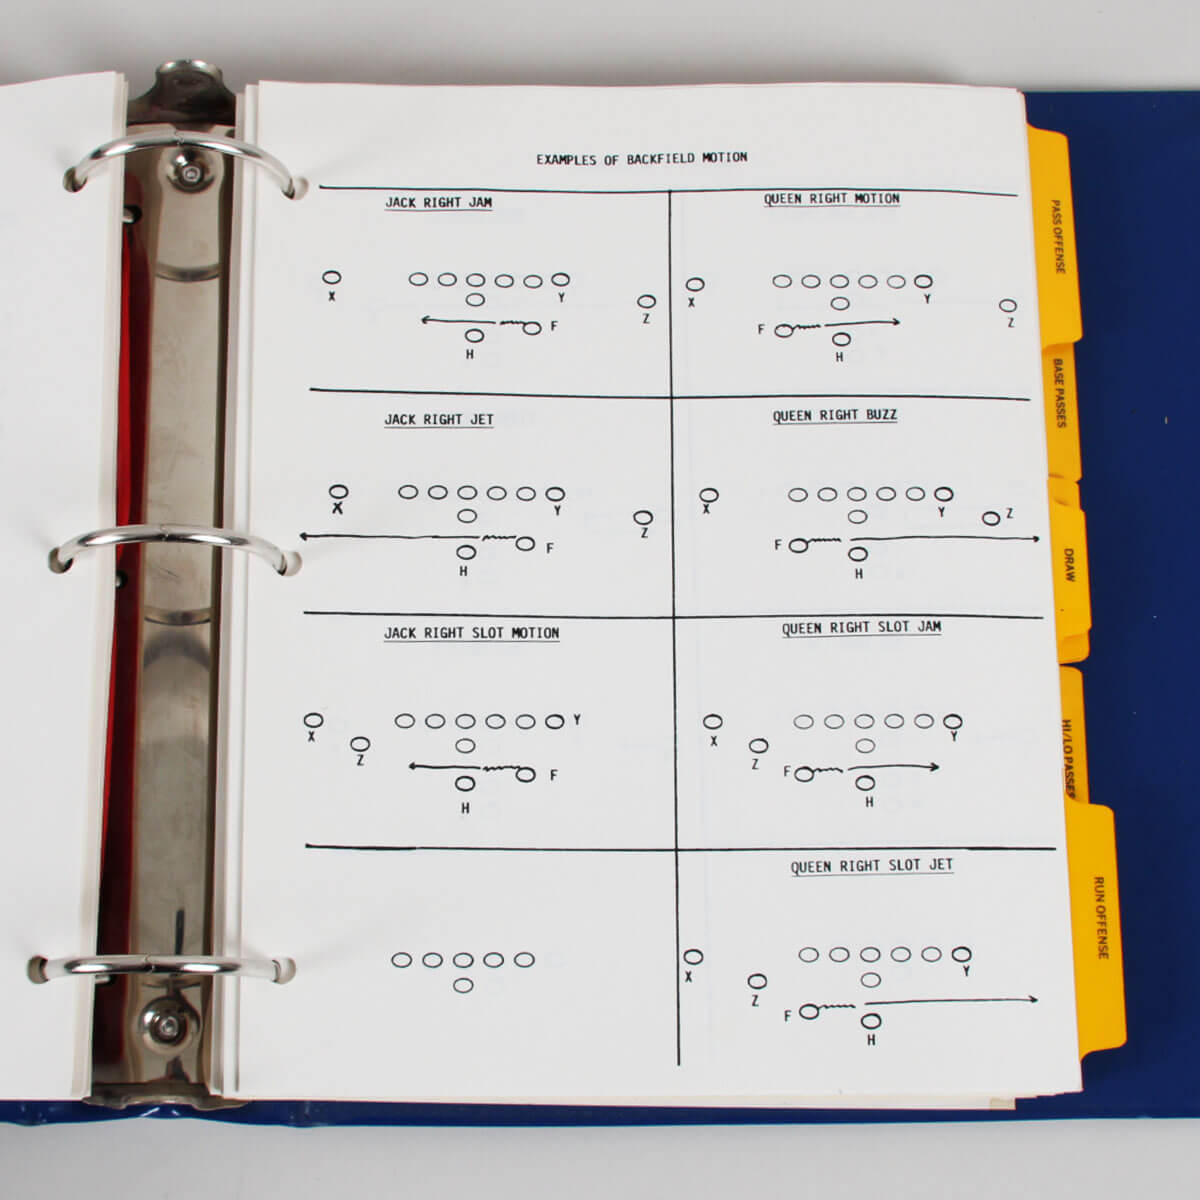 EXAMPLES OF BACKFIELD MOTION
JACK RIGHT JAM
X
Y
Z
F
H
QUEEN RIGHT MOTION
X
Y
Z
F
H
JACK RIGHT JET
X
Y
Z
F
H
QUEEN RIGHT BUZZ
X
Y
Z
F
H
JACK RIGHT SLOT MOTION
X
Y
Z
F
H
QUEEN RIGHT SLOT JAM
X
Y
Z
F
H
QUEEN RIGHT SLOT JET
X
Y
Z
F
H
PASS OFFENSE
BASE PASSES
DRAW
HI/LO PASSES
RUN OFFENSE